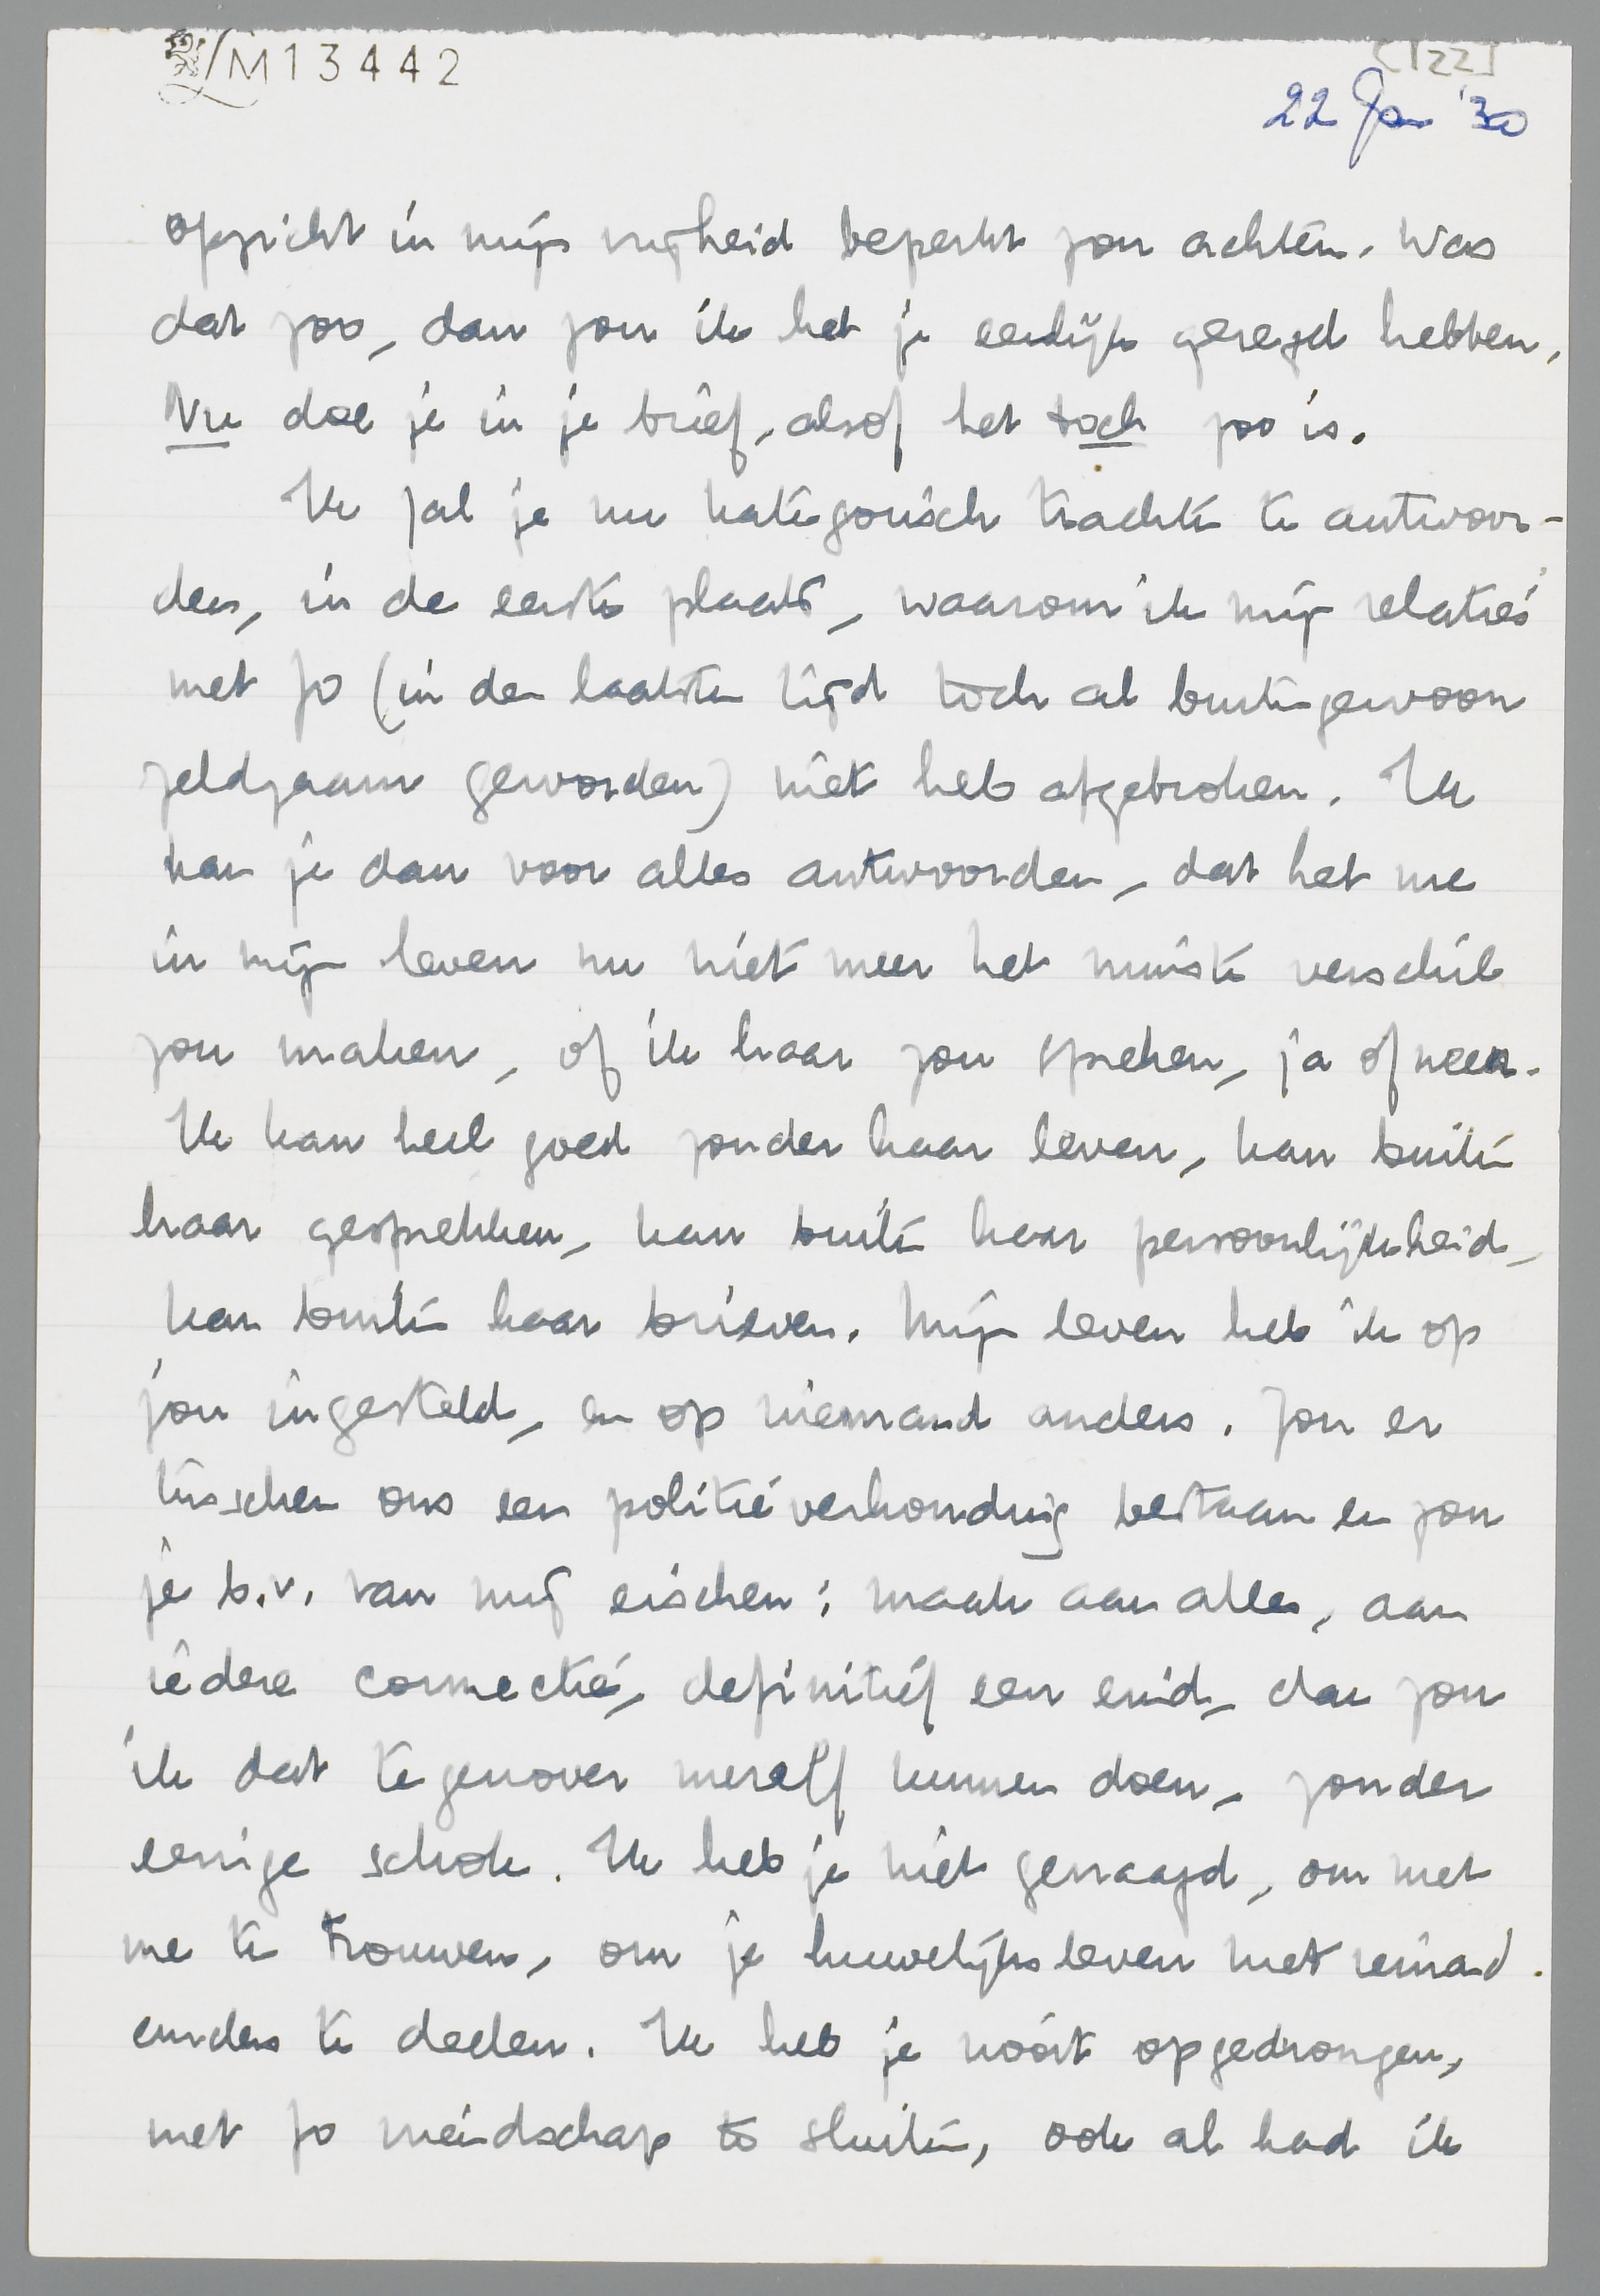 M13442
[122]
22 Jan '30
opzicht in mijn vrijheid beperkt zou achten. Was
dat zoo, dan zou ik het je eerlijk gezegd hebben.
Nu doe je in je brief, alsof het toch zoo is.
Ik zal je nu kategorisch trachten te antwoor-
den, in de eerste plaats, waarom ik mijn relaties
met Jo (in den laatsten tijd toch al buitengewoon
zeldzaam geworden) niet heb afgebroken. Ik
kan je dan voor alles antwoorden, dat het me
in mijn leven nu niet meer het minste verschil
zou maken, of ik haar zou spreken, ja of neen.
Ik kan heel goed zonder haar leven, kan buiten
haar gesprekken, kan buiten haar persoonlijkheid,
kan buiten haar brieven. Mijn leven heb ik op
jou ingesteld, en op niemand anders. Zou er
tusschen ons een politieverhouding bestaan en zou
je b.v. van mij eischen: maak aan alles, aan
iedere connectie, definitief een eind, dan zou
ik dat tegenover mezelf kunnen doen, zonder
eenige schok. Ik heb je niet gevraagd, om met
me te trouwen, om je huwelijksleven met iemand
anders te deelen. Ik heb je nooit opgedrongen,
met Jo vriendschap te sluiten, ook al had ik